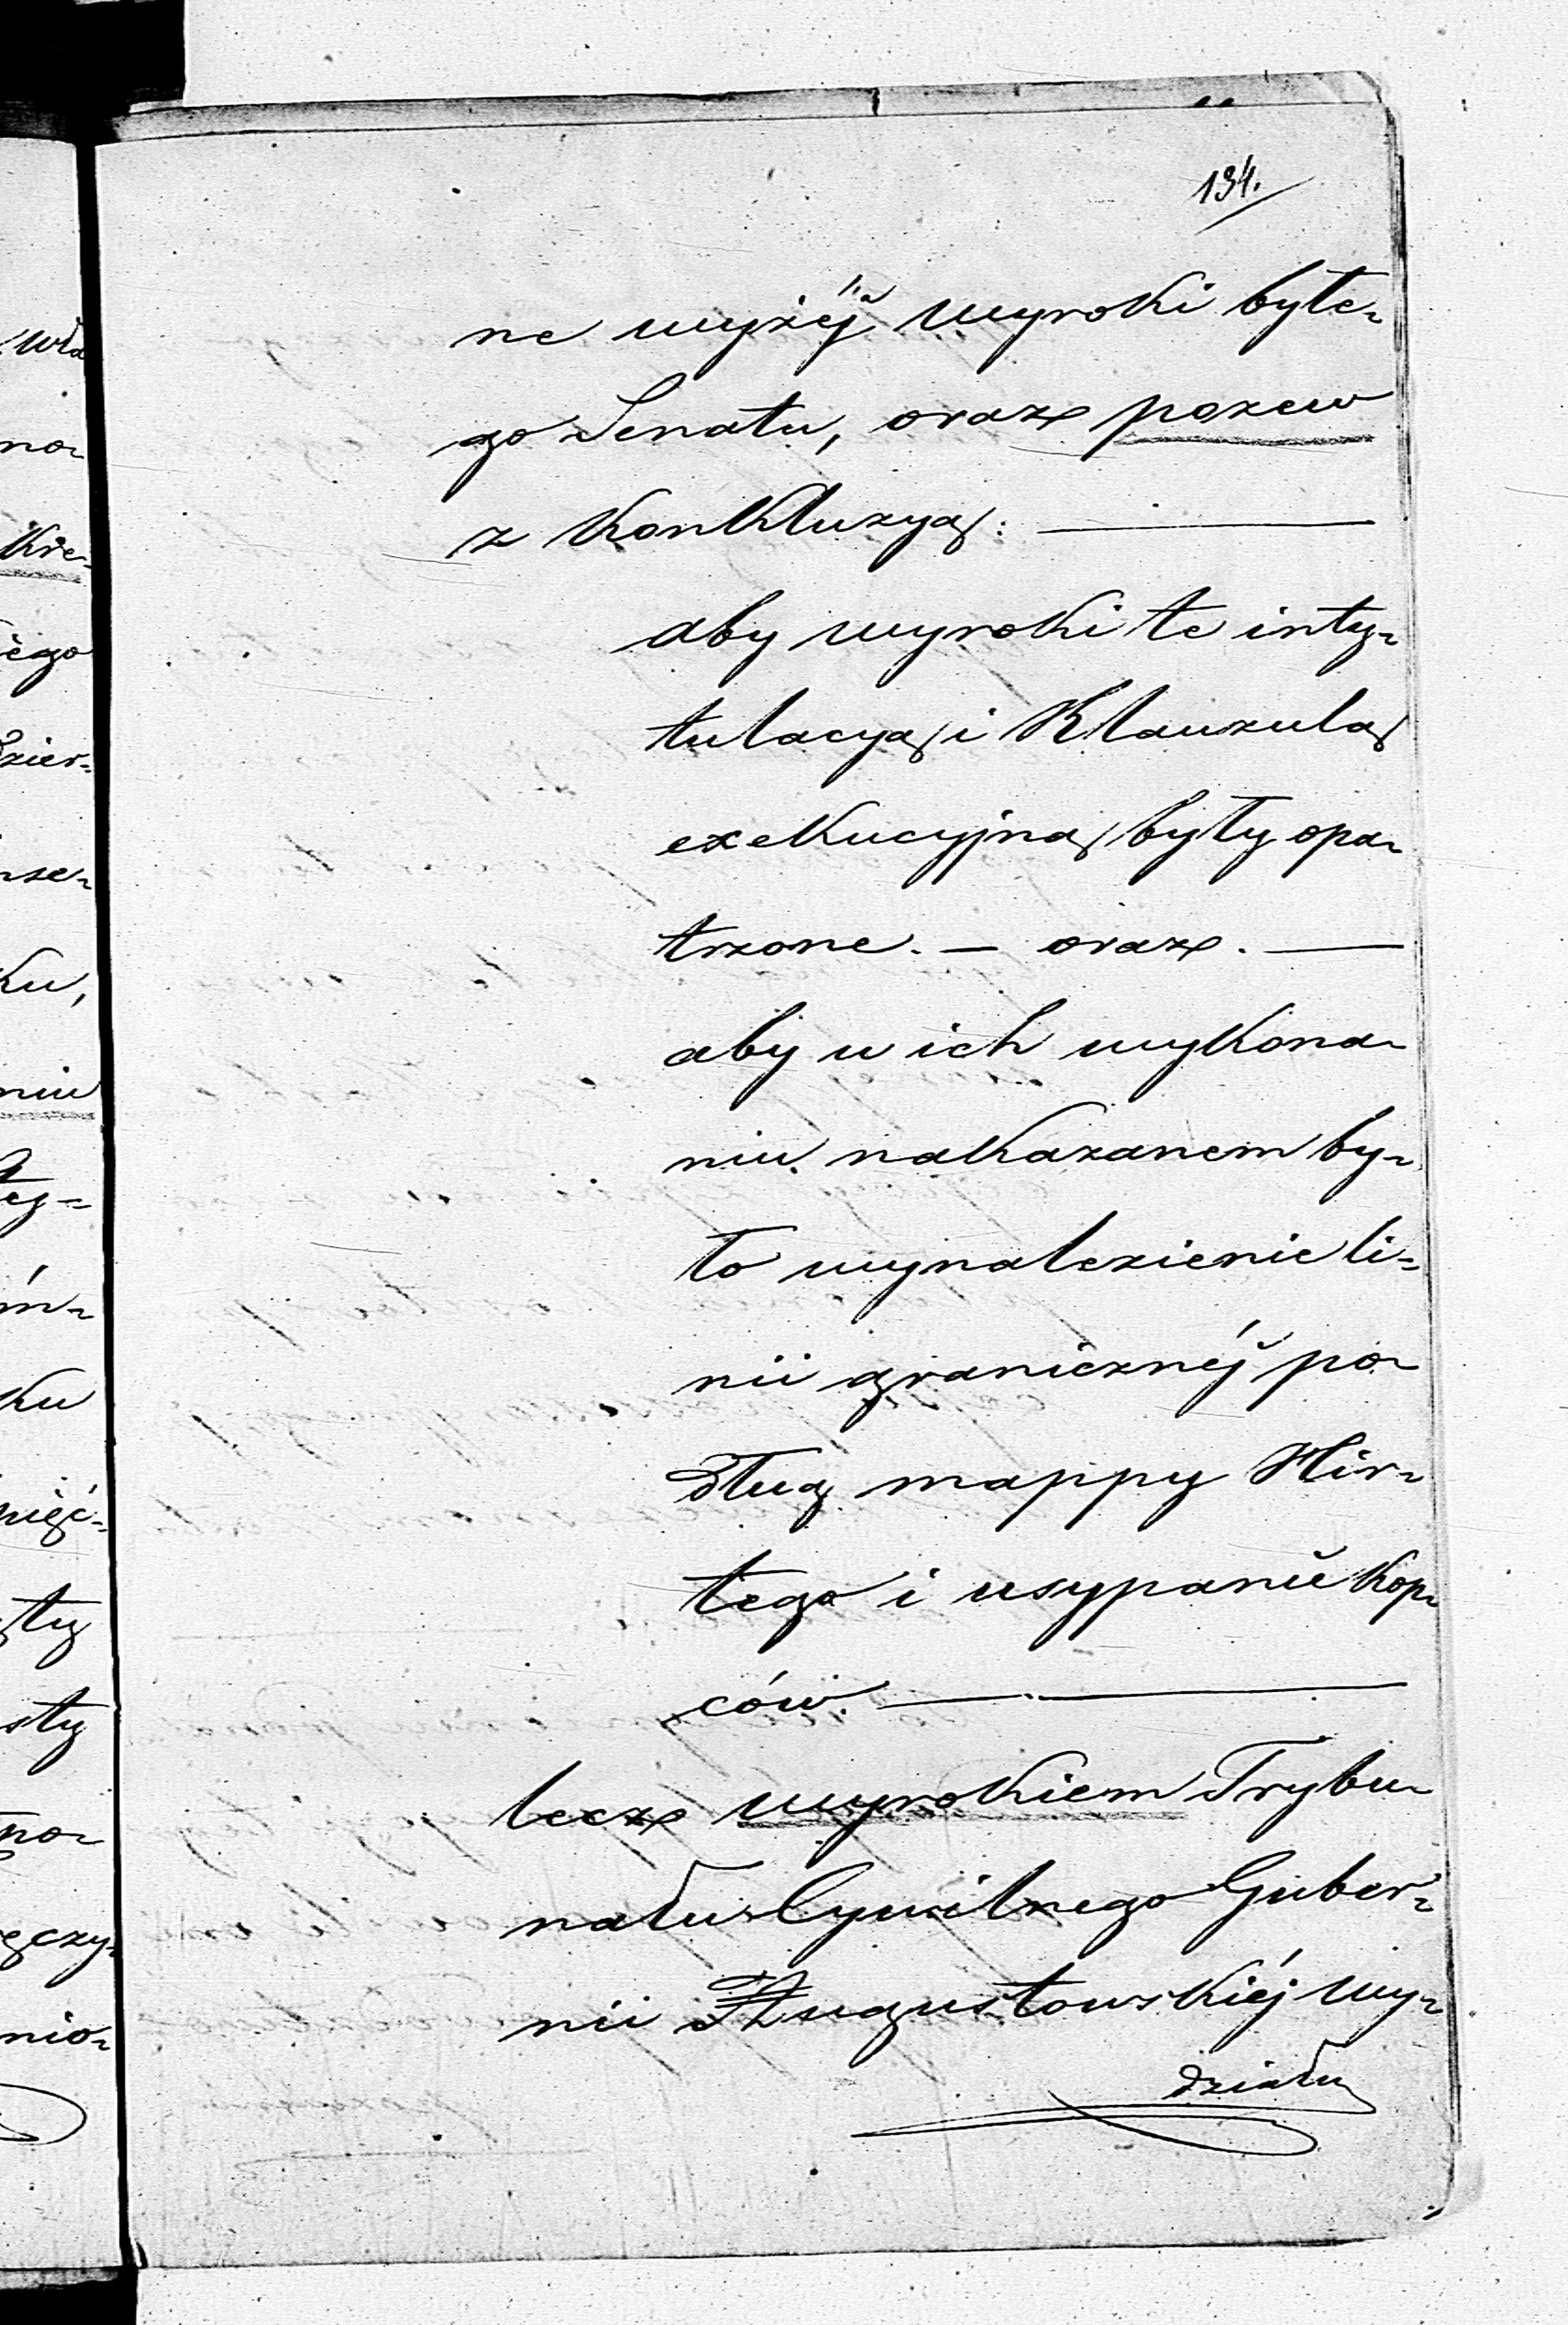 134.
ne wyżéj wyroki byłe-
go Senatu, oraz pozew
z Konkluzyą: —
aby wyroki te inty-
tulacyą i Klauzulą
exekucyjną były opa-
trzone. — oraz. —
aby w ich wykona-
niu nakazanem by-
ło wynalezienie li-
nii granicznéj po-
dług mappy Hir-
tego i usypanie kop-
ców. —
lecz wyrokiem Trybu-
nału Cywilnego Guber-
nii Augustowskiéj wy-
działu